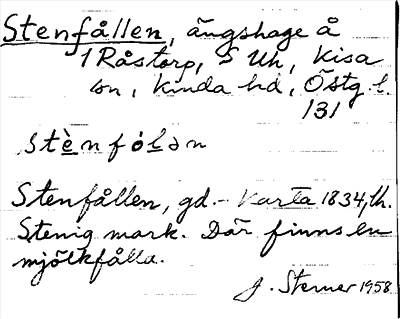 Stenfållen, ängshage å
1 Råstorp, S Uh, Kisa
sn, Kinda hd, Östg. l.
131
stènfólən
Stenfållen, gd. - Karta 1834, th.
Stenig mark. Där finns en
mjölkfålla.
J. Sterner 1958